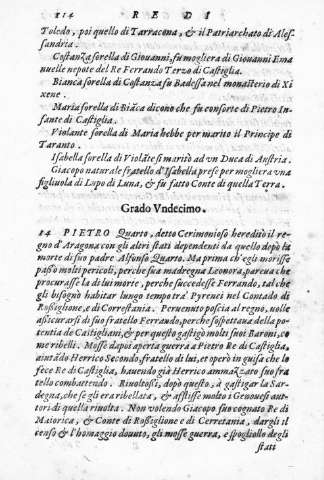 814 RE DI
Toledo, poi quello di Tarracona, & il Patriarchato di Ales-
sandria.
Costanza sorella di Giovanni, fu mogliera di Giovanni Ema
nuelle nepote del Re Ferrando Terzo di Castiglia.
Bianca sorella di Costanza fu Badessa nel monasterio di Xi
xene.
Maria sorella di Biāca dicono che fu consorte di Pietro In-
fante di Castiglia.
Violante sorella di Maria hebbe per marito il Principe di
Taranto.
Isabella sorella di Violāte si maritò ad vn Duca di Austria.
Giacopo naturale fratello d'Isabella prese per mogliera vna
figliuola di Lopo di Luna, & fu fatto Conte di quella Terra.
Grado Vndecimo.
14 PIETRO Quarto, detto Cerimonioso hereditò il re-
gno d'Aragona con gli altri stati dependenti da quello dopò la
morte di suo padre Alfonso Quarto. Ma prima ch'egli morisse
passò molti pericoli, perche sua madregna Leonora, pareua che
procurasse la di lui morte, perche succedesse Ferrando, tal che
gli bisognò habitar lungo tempo trà Pyrenei nel Contado di
Roßiglione, e di Correstania. Peruenuto poscia al regno, uolle
assicurarsi di suo fratello Ferrando, perche sospettaua della po-
tentia de Castigliani, & per questo gastigò molti suoi Baroni, co
me ribelli. Mosse dapoi aperta guerra à Pietro Re di Castiglia,
aiutādo Herrico Secondo, fratello di lui, et operò in guisa che lo
fece Re di Castiglia, hauendo già Herrico ammazzato suo fra
tello combattendo. Riuoltosi, dopò questo, à gastigar la Sar-
degna, che se gli era ribellata, & afflisse molto i Genouesi aut-
tori di quella riuolta. Non volendo Giacopo suo cognato Re di
Maiorica, & Conte di Roßiglione e di Cerretania, dargli il
censo & l'homaggio douuto, gli mosse guerra, e spogliollo degli
stati